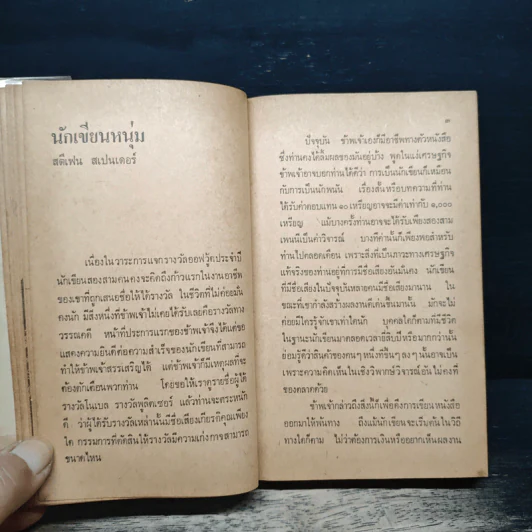 นักเขียนหนุ่ม
สตีเฟน สเปนเดอร์
เนื่องในวาระการแจกรางวัลออฟวุ้ดประจำปี
นักเขียนสองสามคนคงจะคิดถึงก้าวแรกในงานอาชีพ
ของเขาที่ถูกเสนอชื่อให้ได้รางวัล ในชีวิตที่ไม่ค่อยมั่น
คงนัก มีสิ่งหนึ่งที่ข้าพเจ้าไม่เคยได้รับเลยคือรางวัลทาง
วรรณคดี หน้าที่ประการแรกของข้าพเจ้าจึงได้แก่ขอ
แสดงความยินดีต่อความสำเร็จของนักเขียนที่สามารถ
ทำให้ข้าพเจ้าสรรเสริญได้ แต่ข้าพเจ้าก็มีเหตุผลที่จะ
ต้องตักเตือนพวกท่าน โดยขอให้เราดูรายชื่อผู้ได้
รางวัลโนเบล รางวัลพูลิตเซอร์ แล้วท่านจะตระหนัก
ดี ว่าผู้ได้รับรางวัลเหล่านั้นมีชื่อเสียงเกียรติคุณเพียง
ใด กรรมการที่ตัดสินให้รางวัลมีความเก่งกาจสามารถ
ขนาดไหน
ปัจจุบัน ข้าพเจ้าเองก็มีอาชีพทางตัวหนังสือ
ซึ่งท่านคงได้ลิ้มผลของมันอยู่บ้าง พูดในแง่เศรษฐกิจ
ข้าพเจ้าอาจบอกท่านได้ดีว่า การเป็นนักเขียนก็เหมือน
กับการเป็นนักพนัน เรื่องสั้นหรือบทความที่ท่าน
ได้รับค่าตอบแทน ๑๐ เหรียญอาจจะมีค่าเท่ากับ ๑,๐๐๐
เหรียญ แม้บางครั้งท่านอาจจะได้รับเพียงสองสาม
เพนนีเป็นค่าวิจารณ์ บางทีค่านั้นก็เพียงพอสำหรับ
ท่านไปตลอดเดือน เพราะสิ่งที่เป็นภาวะทางเศรษฐกิจ
แท้จริงของท่านอยู่ที่การมีชื่อเสียงอันมั่นคง นักเขียน
ที่มีชื่อเสียงในปัจจุบันหลายคนมีชื่อเสียงมานาน ใน
ขณะที่เขากำลังสร้างผลงานดีเด่นขึ้นมานั้น มักจะไม่
ค่อยมีใครรู้จักเขาเท่าใดนัก บุคคลใดก็ตามที่มีชีวิต
ในฐานะนักเขียนมาตลอดเวลายี่สิบปีหรือมากกว่านั้น
ย่อมรู้ดีว่าสินค้าของคนๆ หนึ่งที่ขึ้นๆ ลงๆ นั้นอาจเป็น
เพราะความคิดเห็นในเชิงวิพากษ์วิจารณ์อันไม่คงที่
ของตลาดด้วย
ข้าพเจ้ากล่าวถึงสิ่งนี้ก็เพื่อดึงการเขียนหนังสือ
ออกมาให้พ้นทาง ถึงแม้นักเขียนจะเริ่มต้นในวิถี
ทางใดก็ตาม ไม่ว่าต้องการเงินหรืออยากเห็นผลงาน